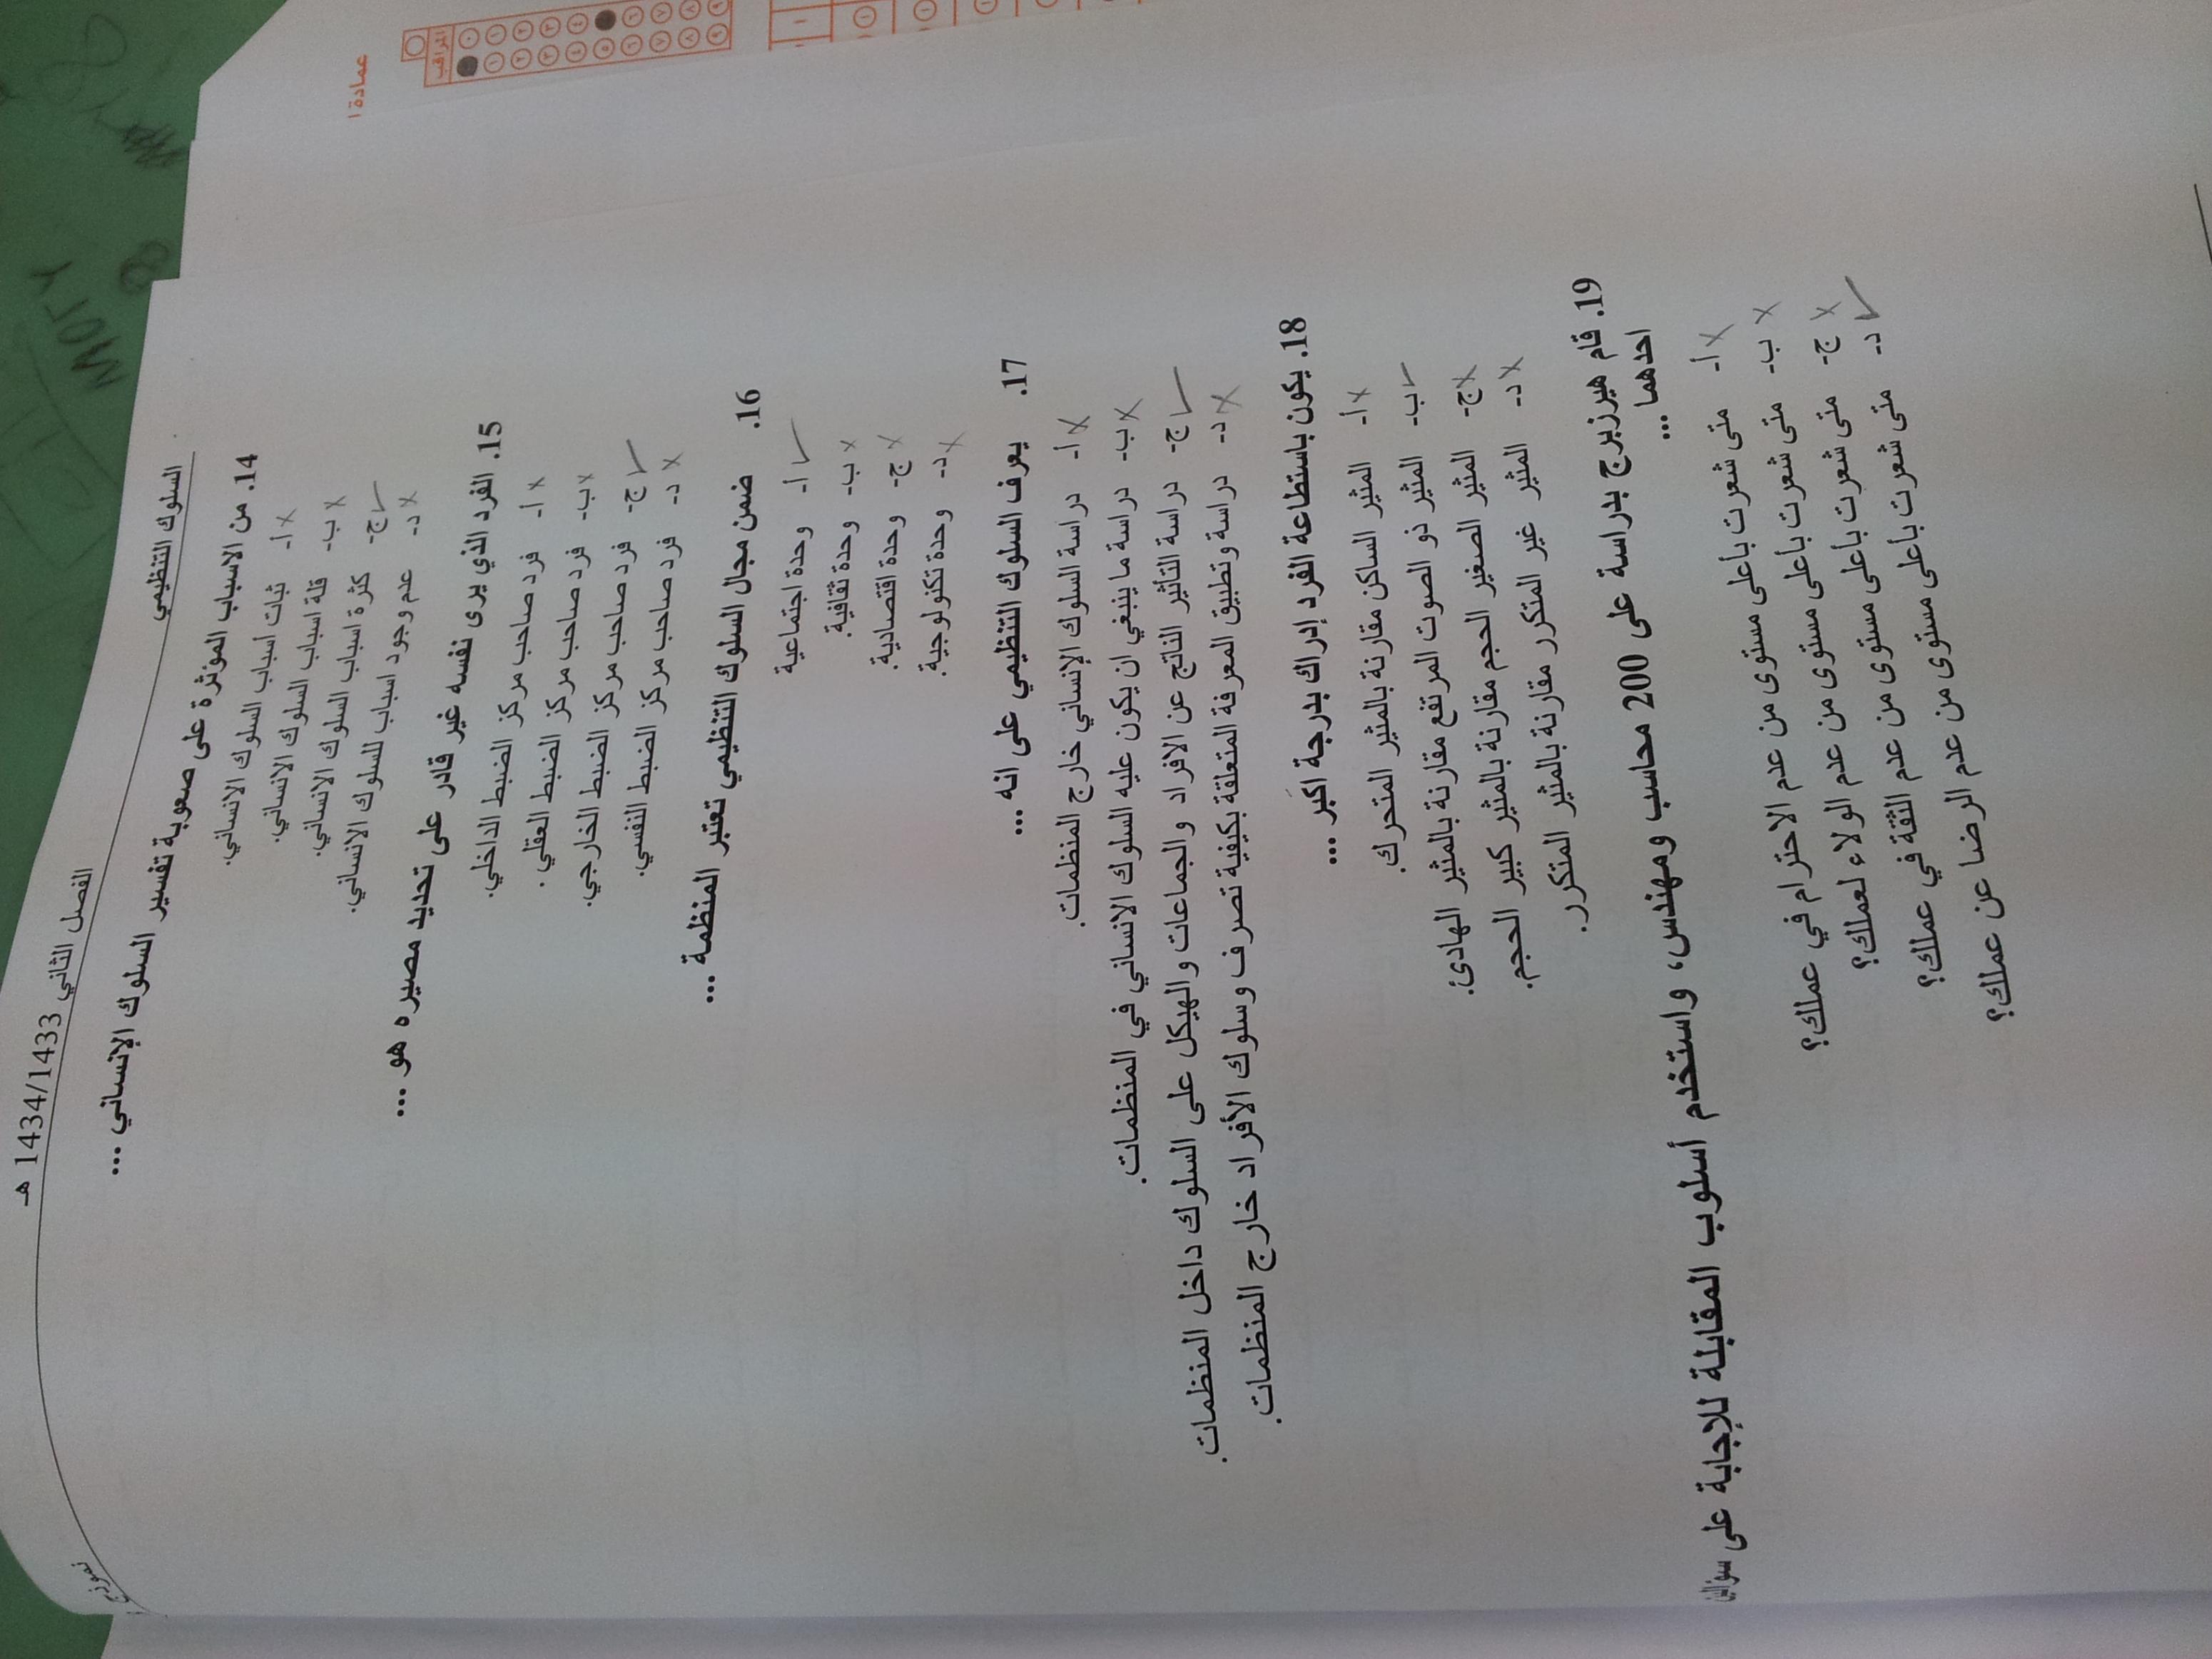 السلوك التنظيمي
الفصل الثاني 1434/1433 هـ
نموذج
14. من الاسباب المؤثرة على صعوبة تفسير السلوك الإنساني ...
أ- ثبات اسباب السلوك الانساني.
ب- قلة اسباب السلوك الانساني.
ج- كثرة اسباب السلوك الانساني.
د- عدم وجود اسباب للسلوك الانساني.
15. الفرد الذي يرى نفسه غير قادر على تحديد مصيره هو ...
أ- فرد صاحب مركز الضبط الداخلي.
ب- فرد صاحب مركز الضبط العقلي .
ج- فرد صاحب مركز الضبط الخارجي.
د- فرد صاحب مركز الضبط النفسي.
16. ضمن مجال السلوك التنظيمي تعتبر المنظمة ...
أ- وحدة اجتماعية
ب- وحدة ثقافية.
ج- وحدة اقتصادية.
د- وحدة تكنولوجية.
17. يعرف السلوك التنظيمي على انه ...
أ- دراسة السلوك الإنساني خارج المنظمات.
ب- دراسة ما ينبغي ان يكون عليه السلوك الانساني في المنظمات.
ج- دراسة التأثير الناتج عن الافراد والجماعات والهيكل على السلوك داخل المنظمات.
د- دراسة وتطبيق المعرفة المتعلقة بكيفية تصرف وسلوك الأفراد خارج المنظمات.
18. يكون باستطاعة الفرد إدراك بدرجة اكبر ...
أ- المثير الساكن مقارنة بالمثير المتحرك.
ب- المثير ذو الصوت المرتفع مقارنة بالمثير الهادئ.
ج- المثير الصغير الحجم مقارنة بالمثير كبير الحجم.
د- المثير غير المتكرر مقارنة بالمثير المتكرر.
19. قام هيرزبرج بدراسة على 200 محاسب ومهندس، واستخدم أسلوب المقابلة للإجابة على سؤالين
احدهما ...
أ- متى شعرت بأعلى مستوى من عدم الاحترام في عملك؟
ب- متى شعرت بأعلى مستوى من عدم الولاء لعملك؟
ج- متى شعرت بأعلى مستوى من عدم الثقة في عملك؟
د- متى شعرت بأعلى مستوى من عدم الرضا عن عملك؟
المراقب